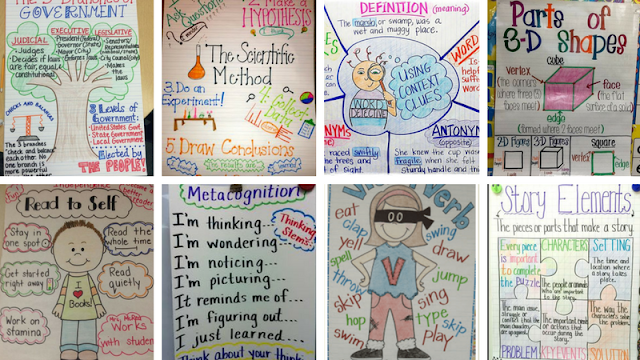 The 3 Branches of
GOVERNMENT
JUDICIAL
EXECUTIVE
LEGISLATIVE
Judges
Decides if laws
are fair equal
constitutional
President (federal)
Governor (state)
Mayor (City)
Makes
the
laws
CHECKS AND BALANCES
The 3 branches
check and balance
each other. No
one branch is
more powerful
3 Levels of
Government:
United States Govt.
State Government
Local Government
Elected by
THE PEOPLE!
2. Make a
HYPOTHESIS
The Scientific
Method
3. Do an
Experiment!
4. Collect
Data
5. Draw Conclusions
DEFINITION (meaning)
The marsh, or swamp, was a
wet and muggy place.
USING
CONTEXT
CLUES
WORD
DETECTIVE
ANTONYMS
(opposite)
She knew the cup was
fragile when she felt
sturdy handle and th
Parts of
3-D Shapes
cube
vertex
(the corners
where three
faces meet)
face
(the flat
surface of a solid)
edge
(formed where 2 faces meet)
2-D Figures
3-D Figures
square
vertex
edge
Read to Self
Stay in
one spot
Read the
whole time
Get started
right away
Read
quietly
I
Books!
Work on
stamina
Works
with student
Metacognition
Thinking
Stems
I'm thinking...
I'm wondering...
I'm noticing...
I'm picturing...
It reminds me of...
I'm figuring out...
I just learned...
Think about your think
Verb
eat
clap
yell
spell
throw
skip
hop
swim
swing
draw
jump
sing
type
skip
play
V
Story Elements
The pieces or parts that make a story.
Every piece
is important
to complete
the Puzzle
CHARACTERS
The people or animals
SETTING
The time and
location where
a story takes
place.
The important
or actions that
occur during the
story.
The way the
characters solve the
problem.
PROBLEM
KEY EVENTS
SOLUTION